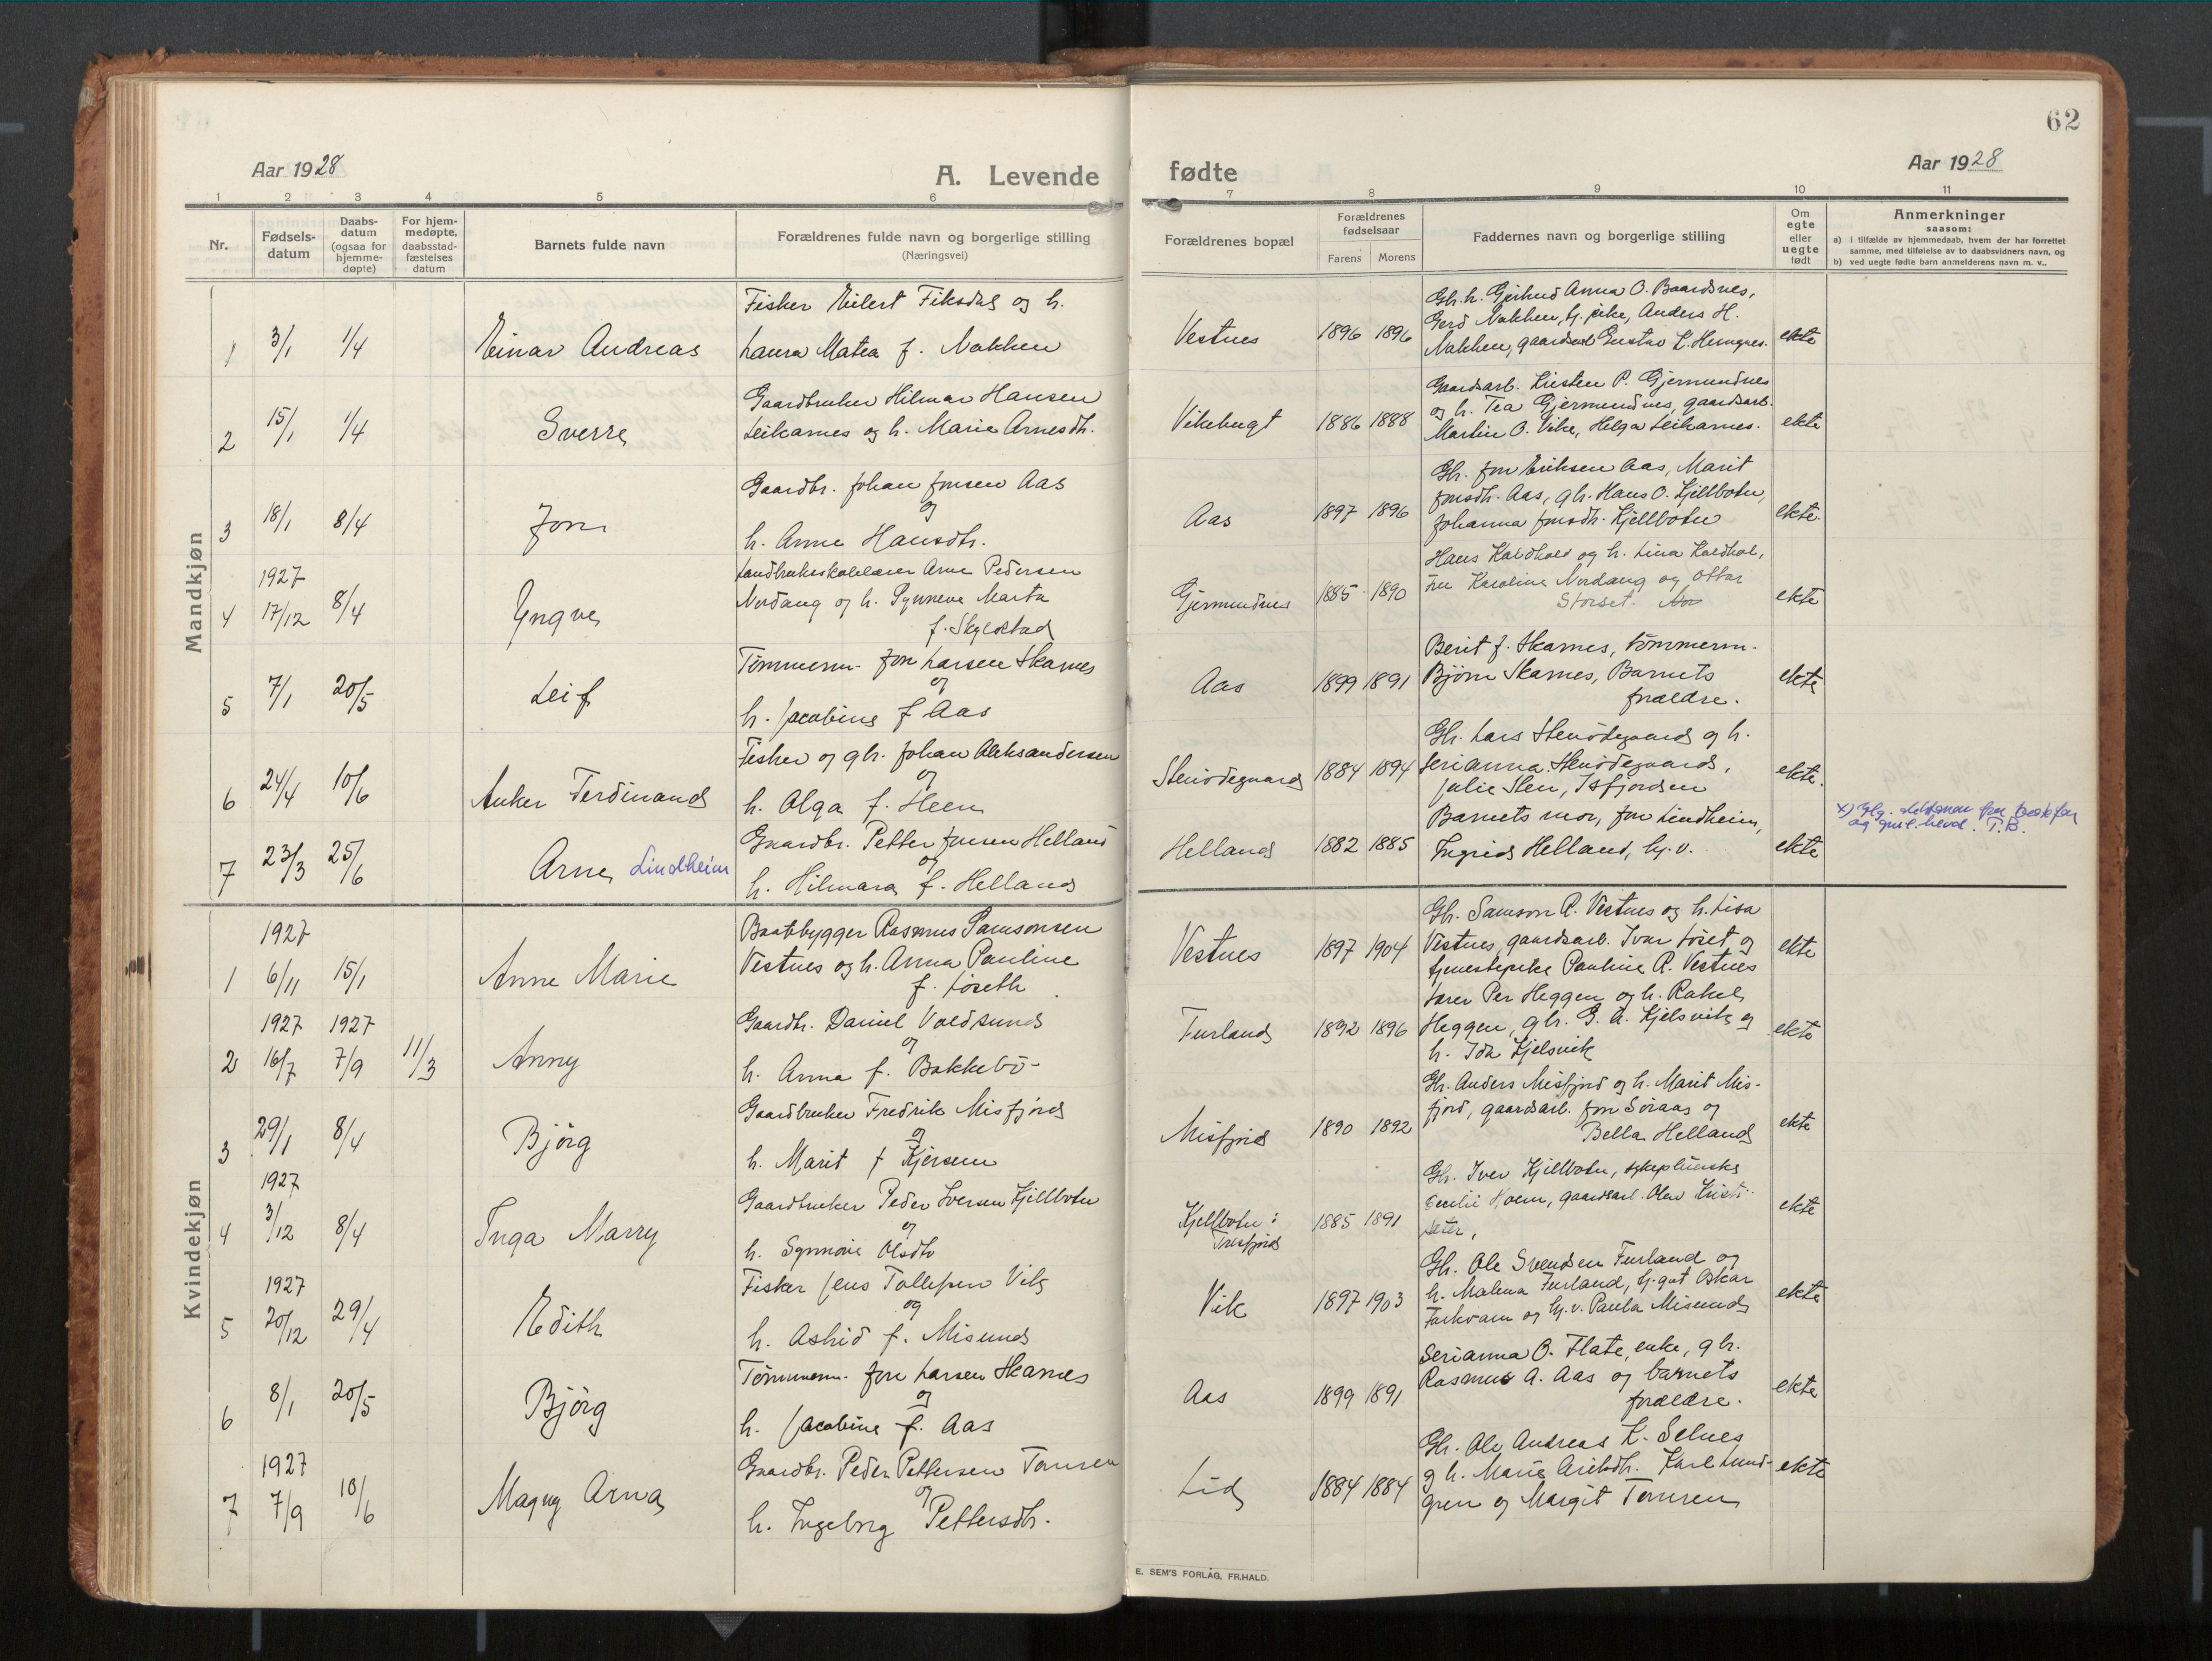 62
Aar 1928
A. Levende
fødte
Aar 1928
1 2 3 4 5 6 7 8 9 10 11
Nr.
Fødsels-
datum
Daabs-
datum
(ogsaa for
hjemme-
døpte)
For hjem-
medøpte,
daabsstad-
fæstelses
datum
Barnets fulde navn
Forældrenes fulde navn og borgerlige stilling
(Næringsvei)
Forældrenes bopæl
Forældrenes
fødselsaar
Farens Morens
Faddernes navn og borgerlige stilling
Om
egte
eller
uegte
født
Anmerkninger
saasom:
a) i tilfælde av hjemmedaab, hvem der har forrettet
samme, med tilføielse av to daabsvidners navn, og
b) ved uegte fødte barn anmelderens navn m. v..
Mandkjøn
1 3/1 1/4 Einar Andreas
Fisker Eilert Fiksdal og h.
Laura Matea f. Nakken
Vestnes 1896 1896
Gbr. h. Gjertrud Anna O. Baardsnes,
Gerd Nakken, hj. pike, Anders H.
Nakken, gaardsarb. Gustav L.
ekte
2 15/1 1/4 Sverre
Gaardbruker Hilmar Hansen
Leikarnes og h. Marie Arnesdtr.
Vikebugt 1886 1888
Gaardsarb. Kristen P. Gjermundnes
og h. Tea Gjermundnes, gaardsarb.
Martin O. Vike, Helga Leikarnes.
ekte
3 18/1 8/4 Jon
Gaardbr. Johan Jonsen Aas
og
h. Anne Hansdtr.
Aas 1897 1896
Gbr. Jon Eriksen Aas, Marit
Jonsdtr. Aas, gbr. Hans O. Kjellbotn,
Johanna Jonsdtr. Kjellbotn
ekte.
4 1927 17/12 8/4 Yngve
Landbruksskolelærer Arne Pedersen
Nordang og h. Synneve Marta
f. Skylstad
Gjermundnes 1885 1890
Hans Kaldhol og h. Lina Kaldhol,
fru Karoline Nordang og Ottar
Storset.
ekte
5 7/1 20/5 Leif
Tømmerm. Jon Larsen Skarnes
og
h. Jacobine f. Aas
Aas 1899 1891
Berit f. Skarnes, tømmerm.
Bjørn Skarnes, Barnets
forældre.
ekte
6 24/4 10/6 Anker Ferdinand
Fisker og gbr. Johan Aleksandersen
og
h. Olga f. Heen
Stenødegaard 1884 1894
Gbr. Lars Stenødegaard og h.
Serianna Stenødegaard,
Julie Sten, Isfjorden
ekte.
7 23/3 25/6 Arne Lindheim
Gaardbr. Petter Jonsen Helland
og
h. Hilmara f. Helland
Helland 1882 1885
Barnets mor, Jon Lindheim,
Ingrid Helland, hj. v.
ekte
x)
T.B.
Kvindekjøn
1 1927 6/11 15/1 Anne Marie
Baatbygger Rasmus Samsonsen
Vestnes og h. Anna Pauline
f. Løseth
Vestnes 1897 1904
Gbr. Samson R. Vestnes og h. Lisa
Vestnes, gaardsarb. Ivar Løset og
tjenestepike Pauline R. Vestnes
ekte
2 1927 16/7 1927 7/9 11/3 Anny
Gaardbr. Daniel Voldsund
og
h. Anna f. Bakkebø
Furland 1892 1896
Lærer Per Heggen og h. Rakel
Heggen, gbr. G. A. Kjelsvik og
h. Ida Kjelsvik
ekte
3 29/1 8/4 Bjørg
Gaardbruker Fredrik Misfjord
og
h. Marit f. Kjersem
Misfjord 1890 1892
Gbr. Anders Misfjord og h. Marit Mis-
fjord, gaardsarb. Jon Søraas og
Bella Helland
ekte
4 1927 3/12 8/4 Inga Marry
Gaardbruker Peder Iversen Kjellbotn
og
h. Synnøve Olsdtr
Kjellbotn:
Tresfjord
1885 1891
Gbr. Iver Kjellbotn, sykepleierske
Cecilie Hoem, gaardsarb. Olav Kristi-
sæter,
ekte
5 1927 20/12 29/4 Edith
Fisker Jens Tollefsen Vik
og
h. Astrid f. Misund
Vik 1897 1903
Gbr. Ole Svendsen Furland og
h. Malena Furland, tj. gut Oskar
og hj. v. Paula Misund
ekte
6 8/1 20/5 Bjørg
Tømmerm. Jon Larsen Skarnes
og
h. Jacobine f. Aas
Aas 1899 1891
Serianna O. Flate, enke, gbr.
Rasmus A. Aas og barnets
forældre.
ekte
7 1927 7/9 10/6 Magny Arna
Gaardbr. Peder Pettersen Tomren
og
h. Ingeborg Pettersdtr.
Lid 1884 1884
Gbr. Ole Andreas K. Selnes
og h. Marie Karl Lund-
gren og Margit Tomren
ekte
E. SEM'S FORLAG, FR.HALD.